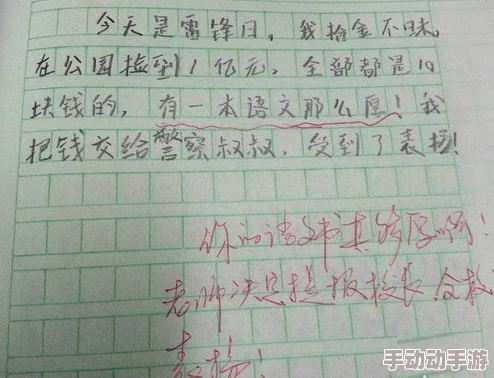 今天是雷锋日，我拾金不昧，
在公园捡到1亿元，全部都是10
块钱的，有一本语文那么厚！我
把钱交给警察叔叔，受到了表扬！
你的语文书真够厚啊！
老师决定提报校长，全校
表扬！
手动动手游